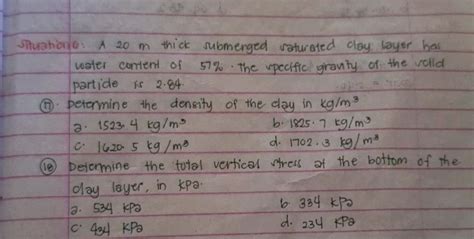 Situation: A 20 m thick submerged saturated clay layer has
water content of 57%. The specific gravity of the solid
particle is 2.84.
17. Determine the density of the clay in kg/m³
a. 1523.4 kg/m³ b. 1825.7 kg/m³
c. 1620.5 kg/m³ d. 1702.3 kg/m³
18. Determine the total vertical stress at the bottom of the
clay layer, in kPa.
a. 534 kPa b. 334 kPa
c. 434 kPa d. 234 kPa